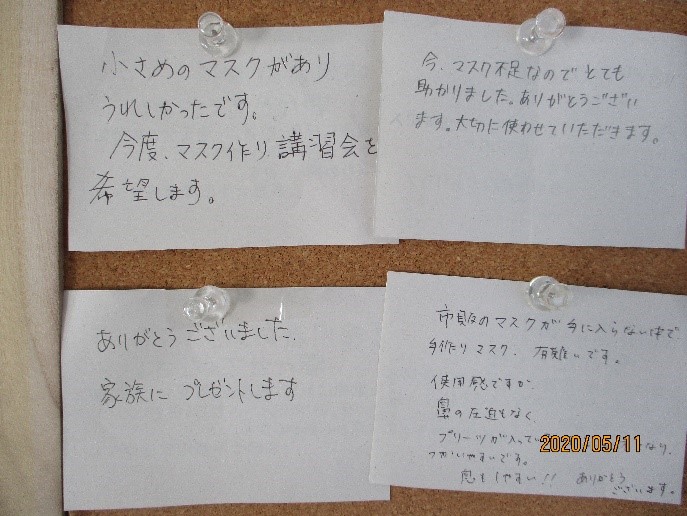 小さめのマスクがあり
うれしかったです。
今度、マスク作り講習会を
希望します。
今、マスク不足なのでとても
助かりました。ありがとうござい
ます。大切に使わせていただきます。
ありがとうございました。
家族にプレゼントします
市販のマスクが手に入らない中で
手作りマスク、有難いです。
使用感ですが、
鼻の圧迫もなく、
プリーツが入ってい なり、
つかいやすいです。
息もしやすい!! ありがとう
ございます。
2020/05/11